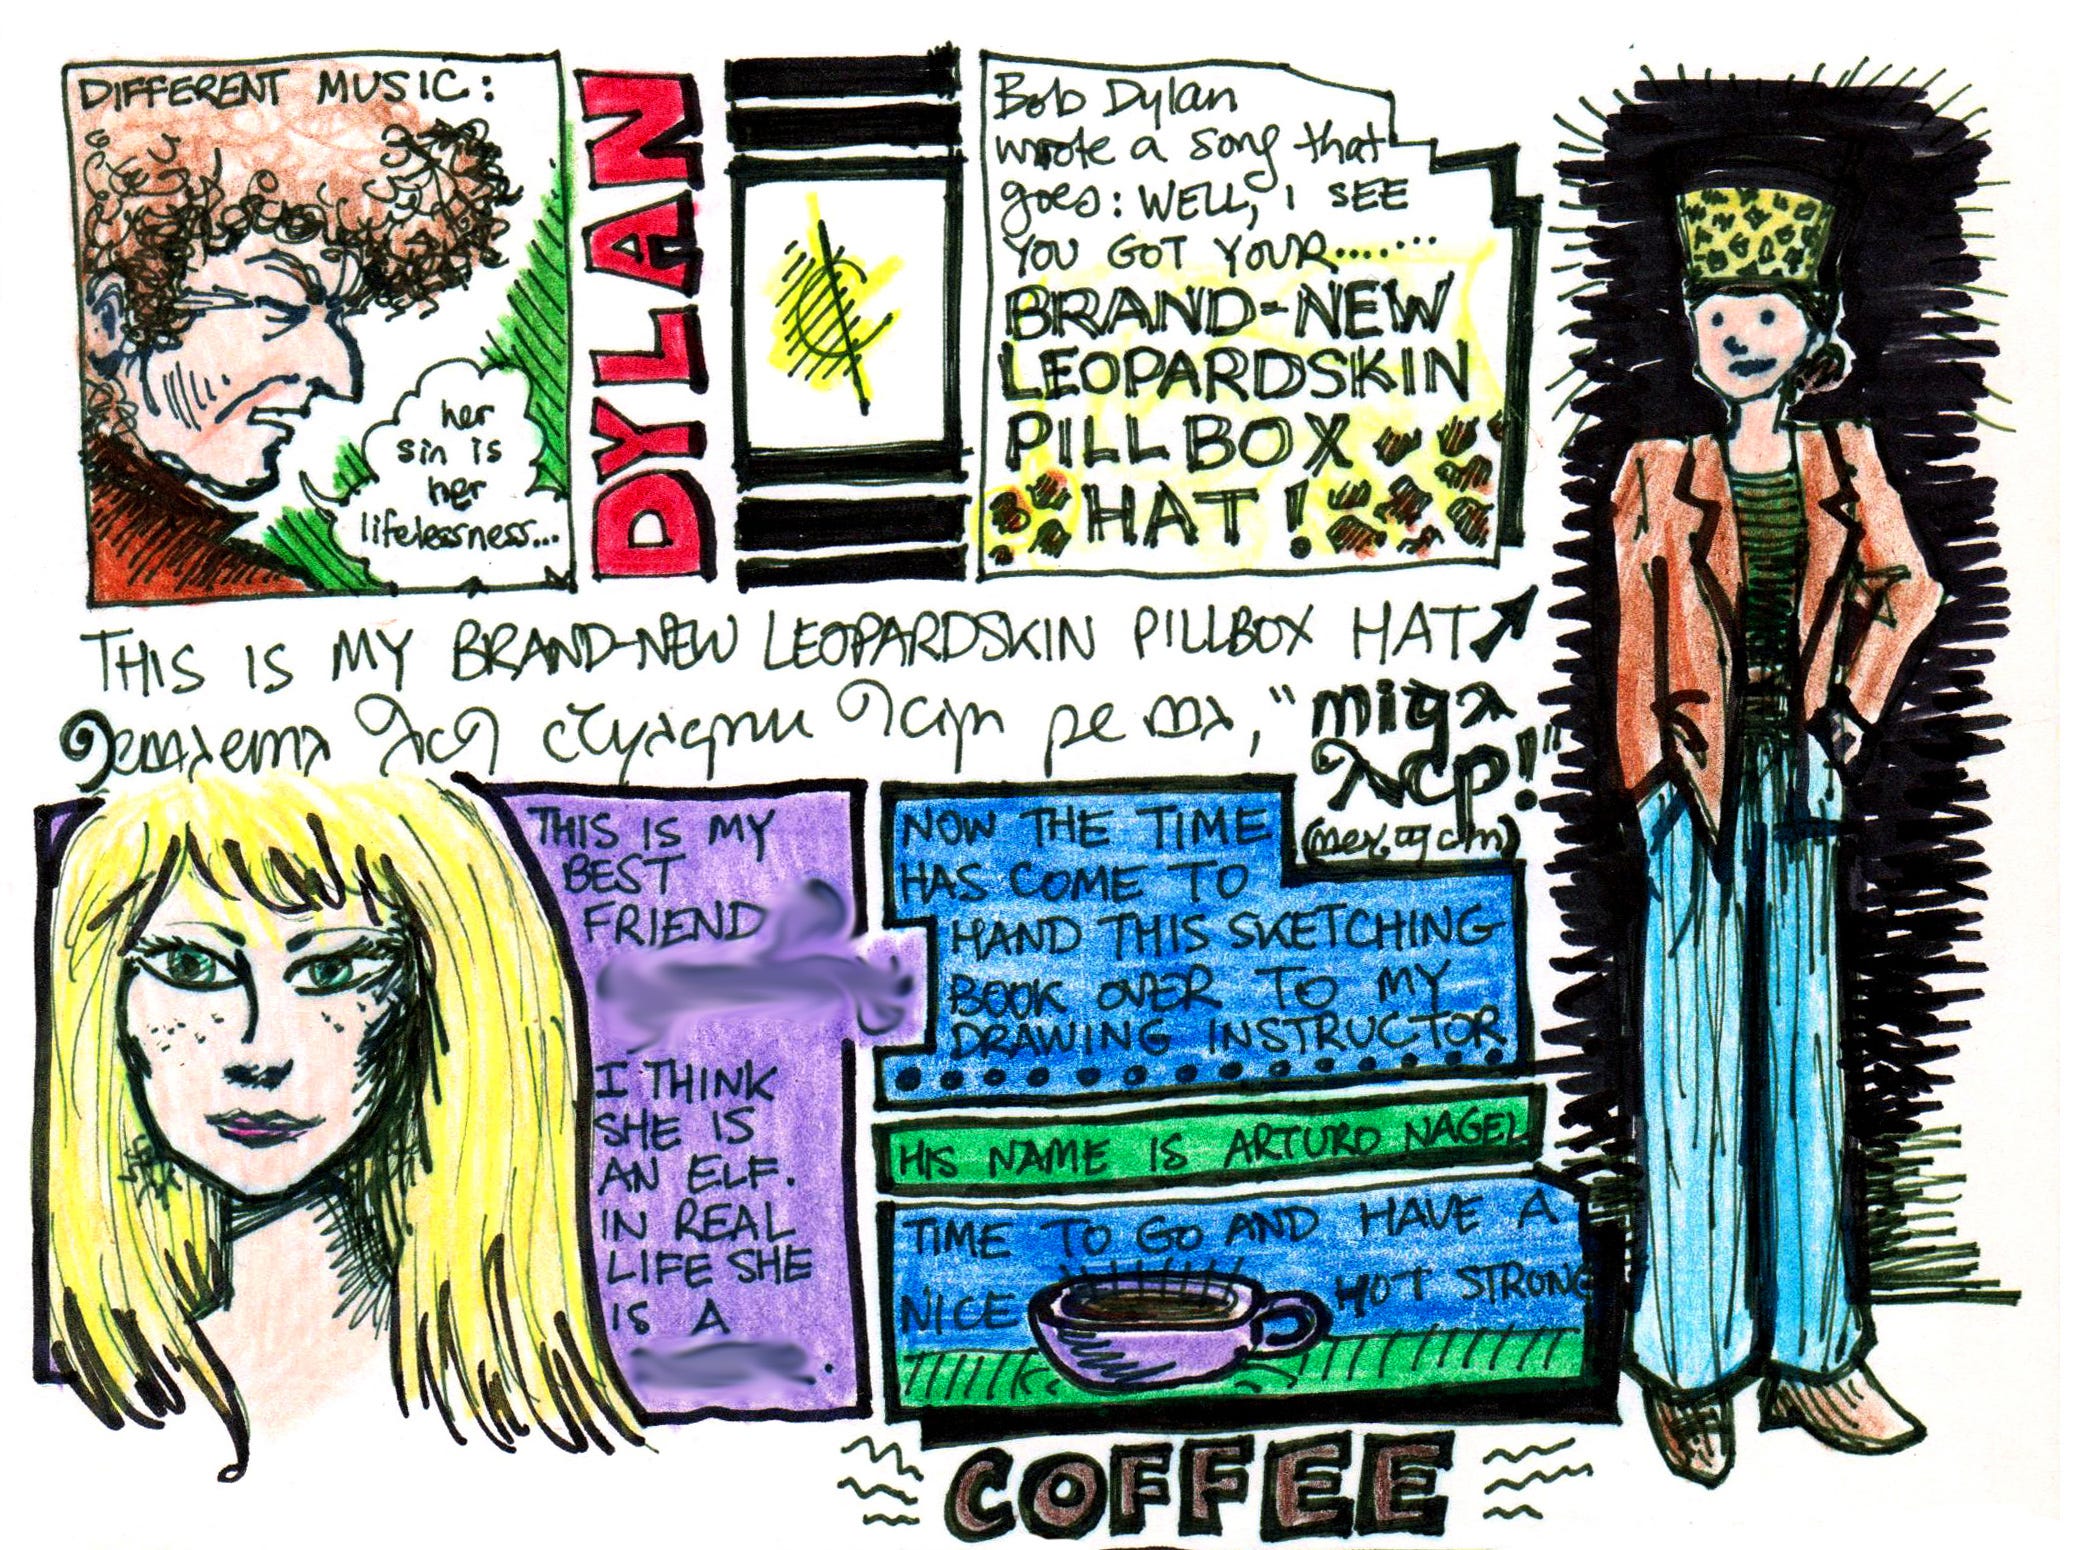 DIFFERENT MUSIC:
her
sin is
her
lifelessness...
DYLAN
Bob Dylan
wrote a song that
goes: WELL, I SEE
YOU GOT YOUR.......
BRAND-NEW
LEOPARDSKIN
PILLBOX
HAT!
THIS IS MY BRAND-NEW LEOPARDSKIN PILLBOX HAT
THIS IS MY
BEST
FRIEND
I THINK
SHE IS
AN ELF.
IN REAL
LIFE SHE
IS A
NOW THE TIME
HAS COME TO
HAND THIS SKETCHING
BOOK OVER TO MY
DRAWING INSTRUCTOR
HIS NAME IS ARTURO NAGEL
TIME TO GO AND HAVE A
NICE HOT STRONG
COFFEE